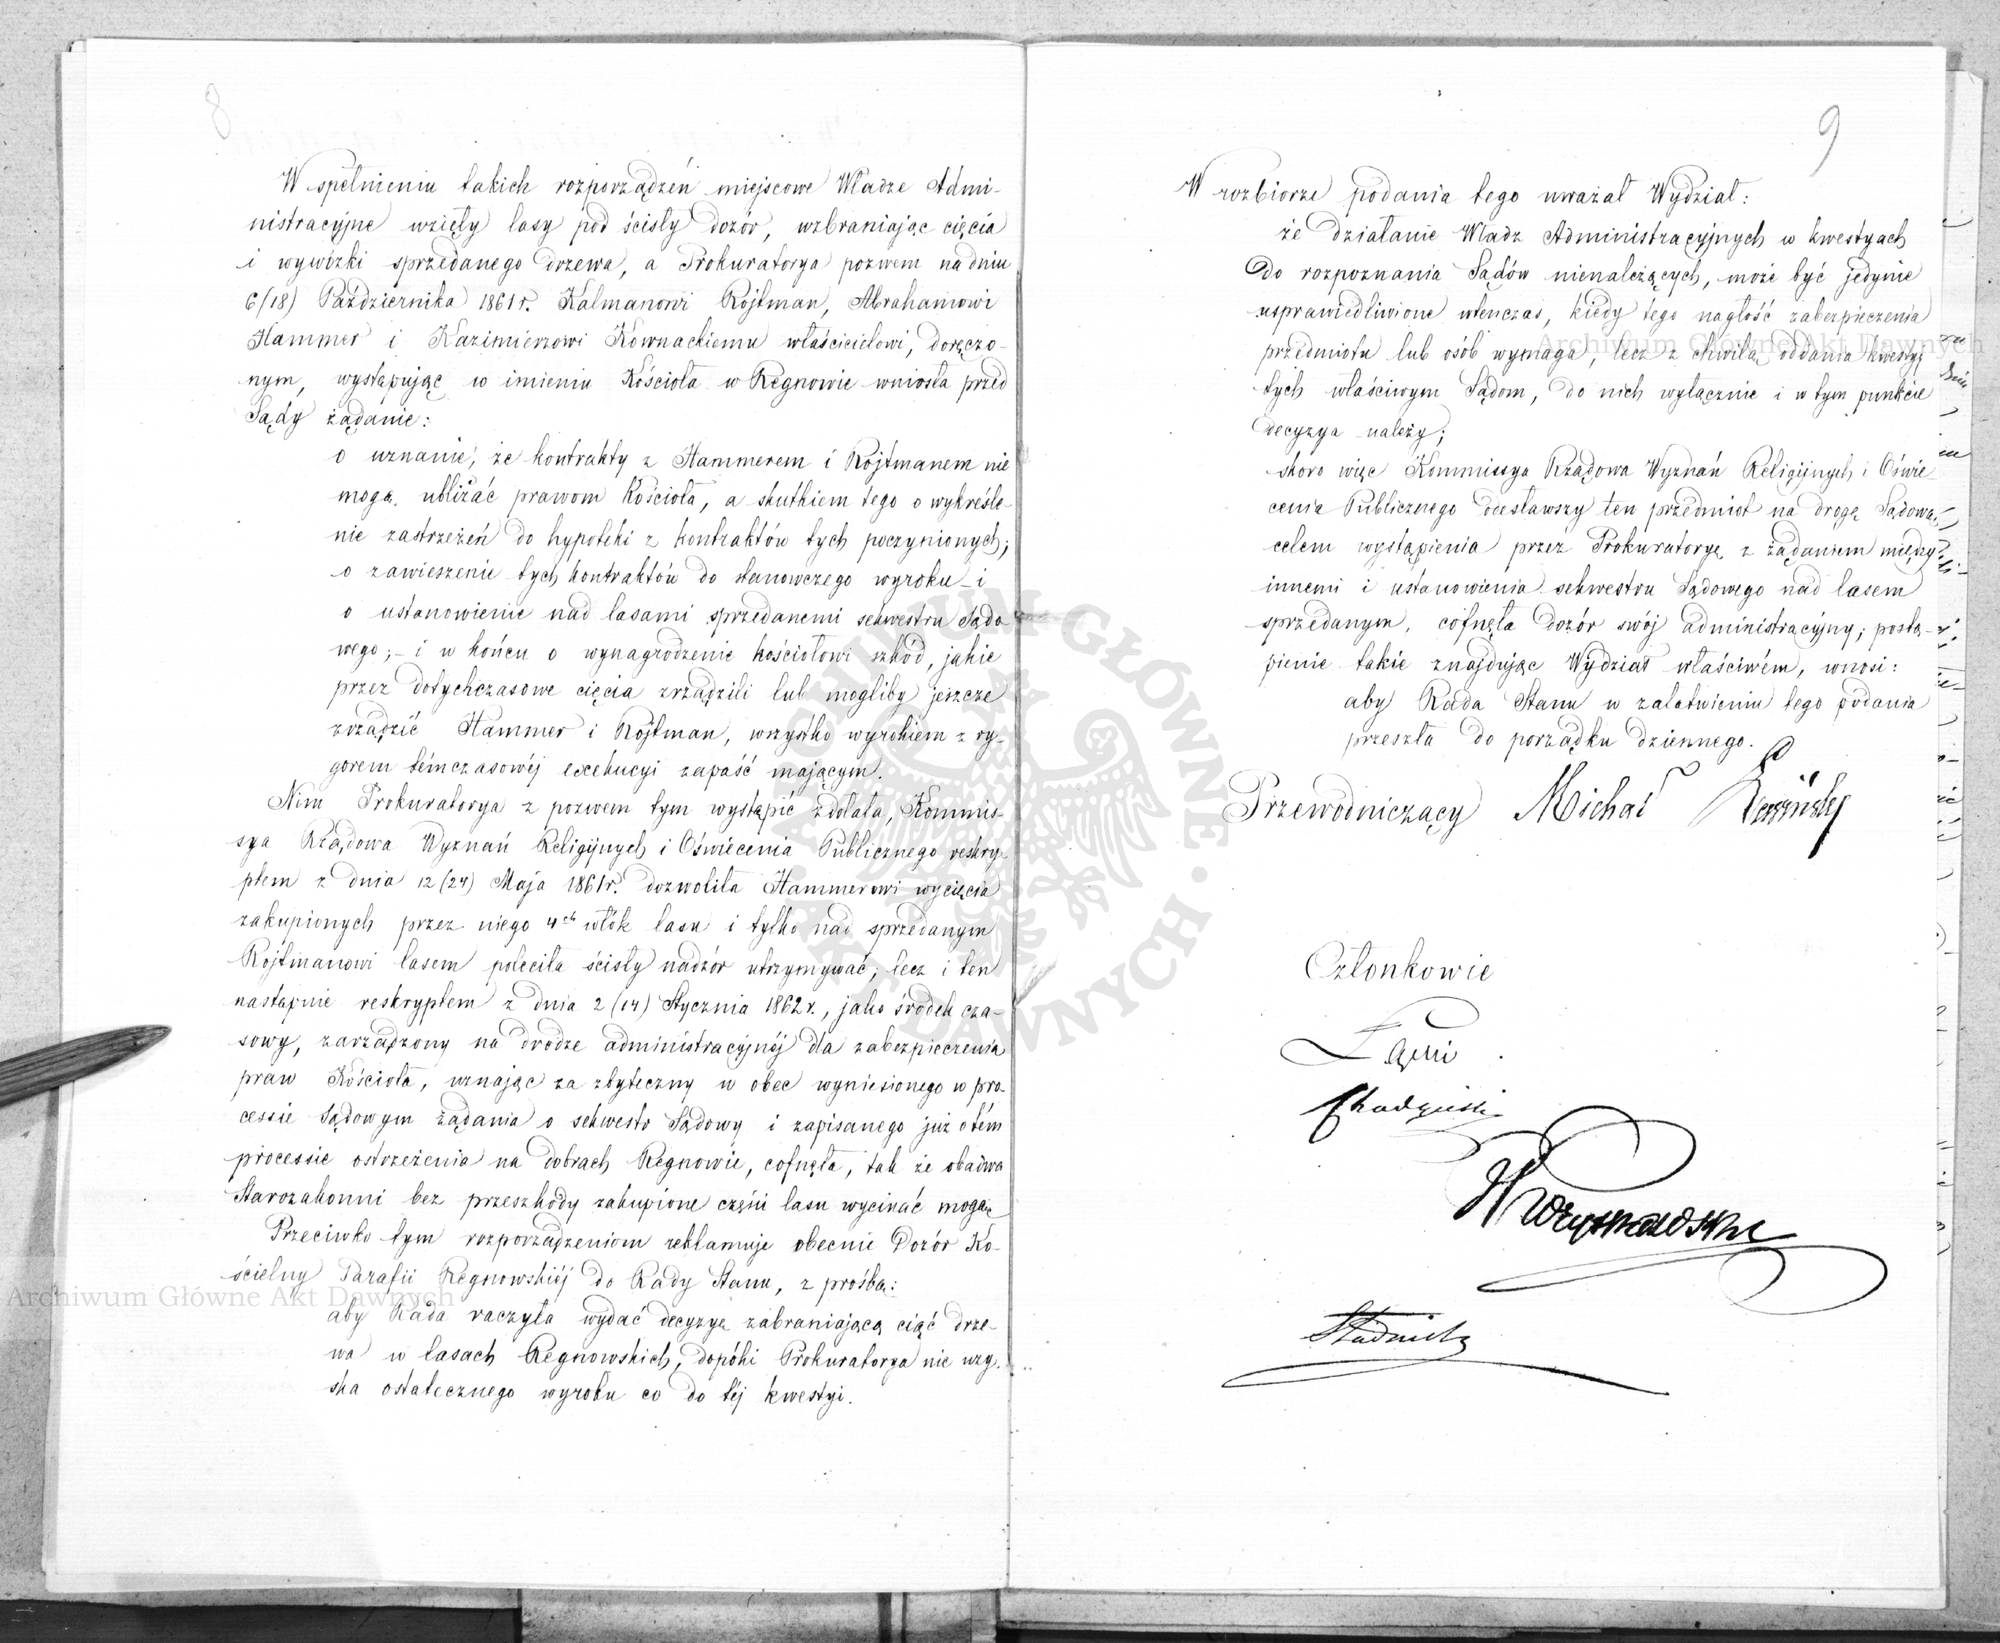 8
W spełnieniu takich rozporządzeń miejscowe Władze Admi-
nistracyjne wzięły lasy pod ścisły dozór, wzbraniając cięcia
i wywózki sprzedanego drzewa, a Prokuratorya pozwem na dniu
6/18) Października 1861 r. Kalmanowi Rójtman, Abrahamowi
Hammer i Kazimierzowi Kownackiemu właścicielowi, doręczo-
nym, występując w imieniu Kościoła w Regnowie wniosła przed
Sądy żądanie:
o uznanie, że kontrakty z Hammerem i Rójtmanem nie
mogą ubliżać prawom Kościoła, a skutkiem tego o wykreśle-
nie zastrzeżeń do hypoteki z kontraktów tych poczynionych;
o zawieszenie tych kontraktów do stanowczego wyroku i
o ustanowienie nad lasami sprzedanemi sekwestru Sądo-
wego; – i w końcu o wynagrodzenie kościołowi szkód, jakie
przez dotychczasowe cięcia zrządzili lub mogliby jeszcze
zrządzić Hammer i Rójtman, wszystko wyrokiem z ry-
gorem témczasowéj exekucyi zapaść mającym.
Nim Prokuratorya z pozwem tym wystąpić zdołała, Kommis-
sya Rządowa Wyznań Religijnych i Oświecenia Publicznego reskry-
ptem z dnia 12 (24) Maja 1861 r. dozwoliła Hammerowi wycięcia
zakupionych przez niego 4ch włók lasu i tylko nad sprzedanym
Rójtmanowi lasem poleciła ścisły nadzór utrzymywać; lecz i ten
następnie reskryptem z dnia 2 (14) Stycznia 1862 r., jako środek cza-
sowy, zarządzony na drodze administracyjnéj dla zabezpieczenia
praw Kościoła, uznając za zbyteczny w obec wyniesionego w pro-
cessie Sądowym żądania o sekwestr Sądowy i zapisanego już o tém
processie ostrzeżenia na dobrach Regnowie, cofnęła, tak że obadwa
Starozakonni bez przeszkody zakupione części lasu wycinać mogą.
Przeciwko tym rozporządzeniom reklamuje obecnie Dozór Ko-
ścielny Parafii Regnowskiéj do Rady Stanu, z prośbą:
aby Rada raczyła wydać decyzyę zabraniającą ciąć drze-
wa w lasach Regnowskich, dopóki Prokuratorya nie uzy-
ska ostatecznego wyroku co do téj kwestyi.
9
W rozbiorze podania tego uważał Wydział:
że działanie Władz Administracyjnych w kwestyach
do rozpoznania Sądów nienależących, może być jedynie
usprawiedliwione wtenczas, kiedy tego nagłość zabezpieczenia
przedmiotu lub osób wymaga, lecz z chwilą oddania kwestyj
tych właściwym Sądom, do nich wyłącznie i w tym punkcie
decyzya należy;
skoro więc Kommissya Rządowa Wyznań Religijnych i Oświe-
cenia Publicznego odesławszy ten przedmiot na drogę Sądową,
celem wystąpienia przez Prokuratoryę z żądaniem między
innemi i ustanowienia sekwestru Sądowego nad lasem
sprzedanym, cofnęła dozór swój administracyjny; postą-
pienie takie znajdując Wydział właściwém, wnosi:
aby Rada Stanu w załatwieniu tego podania
przeszła do porządku dziennego.
Przewodniczący Michał
Członkowie
Łęski
Archiwum Główne Akt Dawnych
Archiwum Główne Akt Dawnych
ARCHIWUM GŁÓWNE · AKT DAWNYCH ·